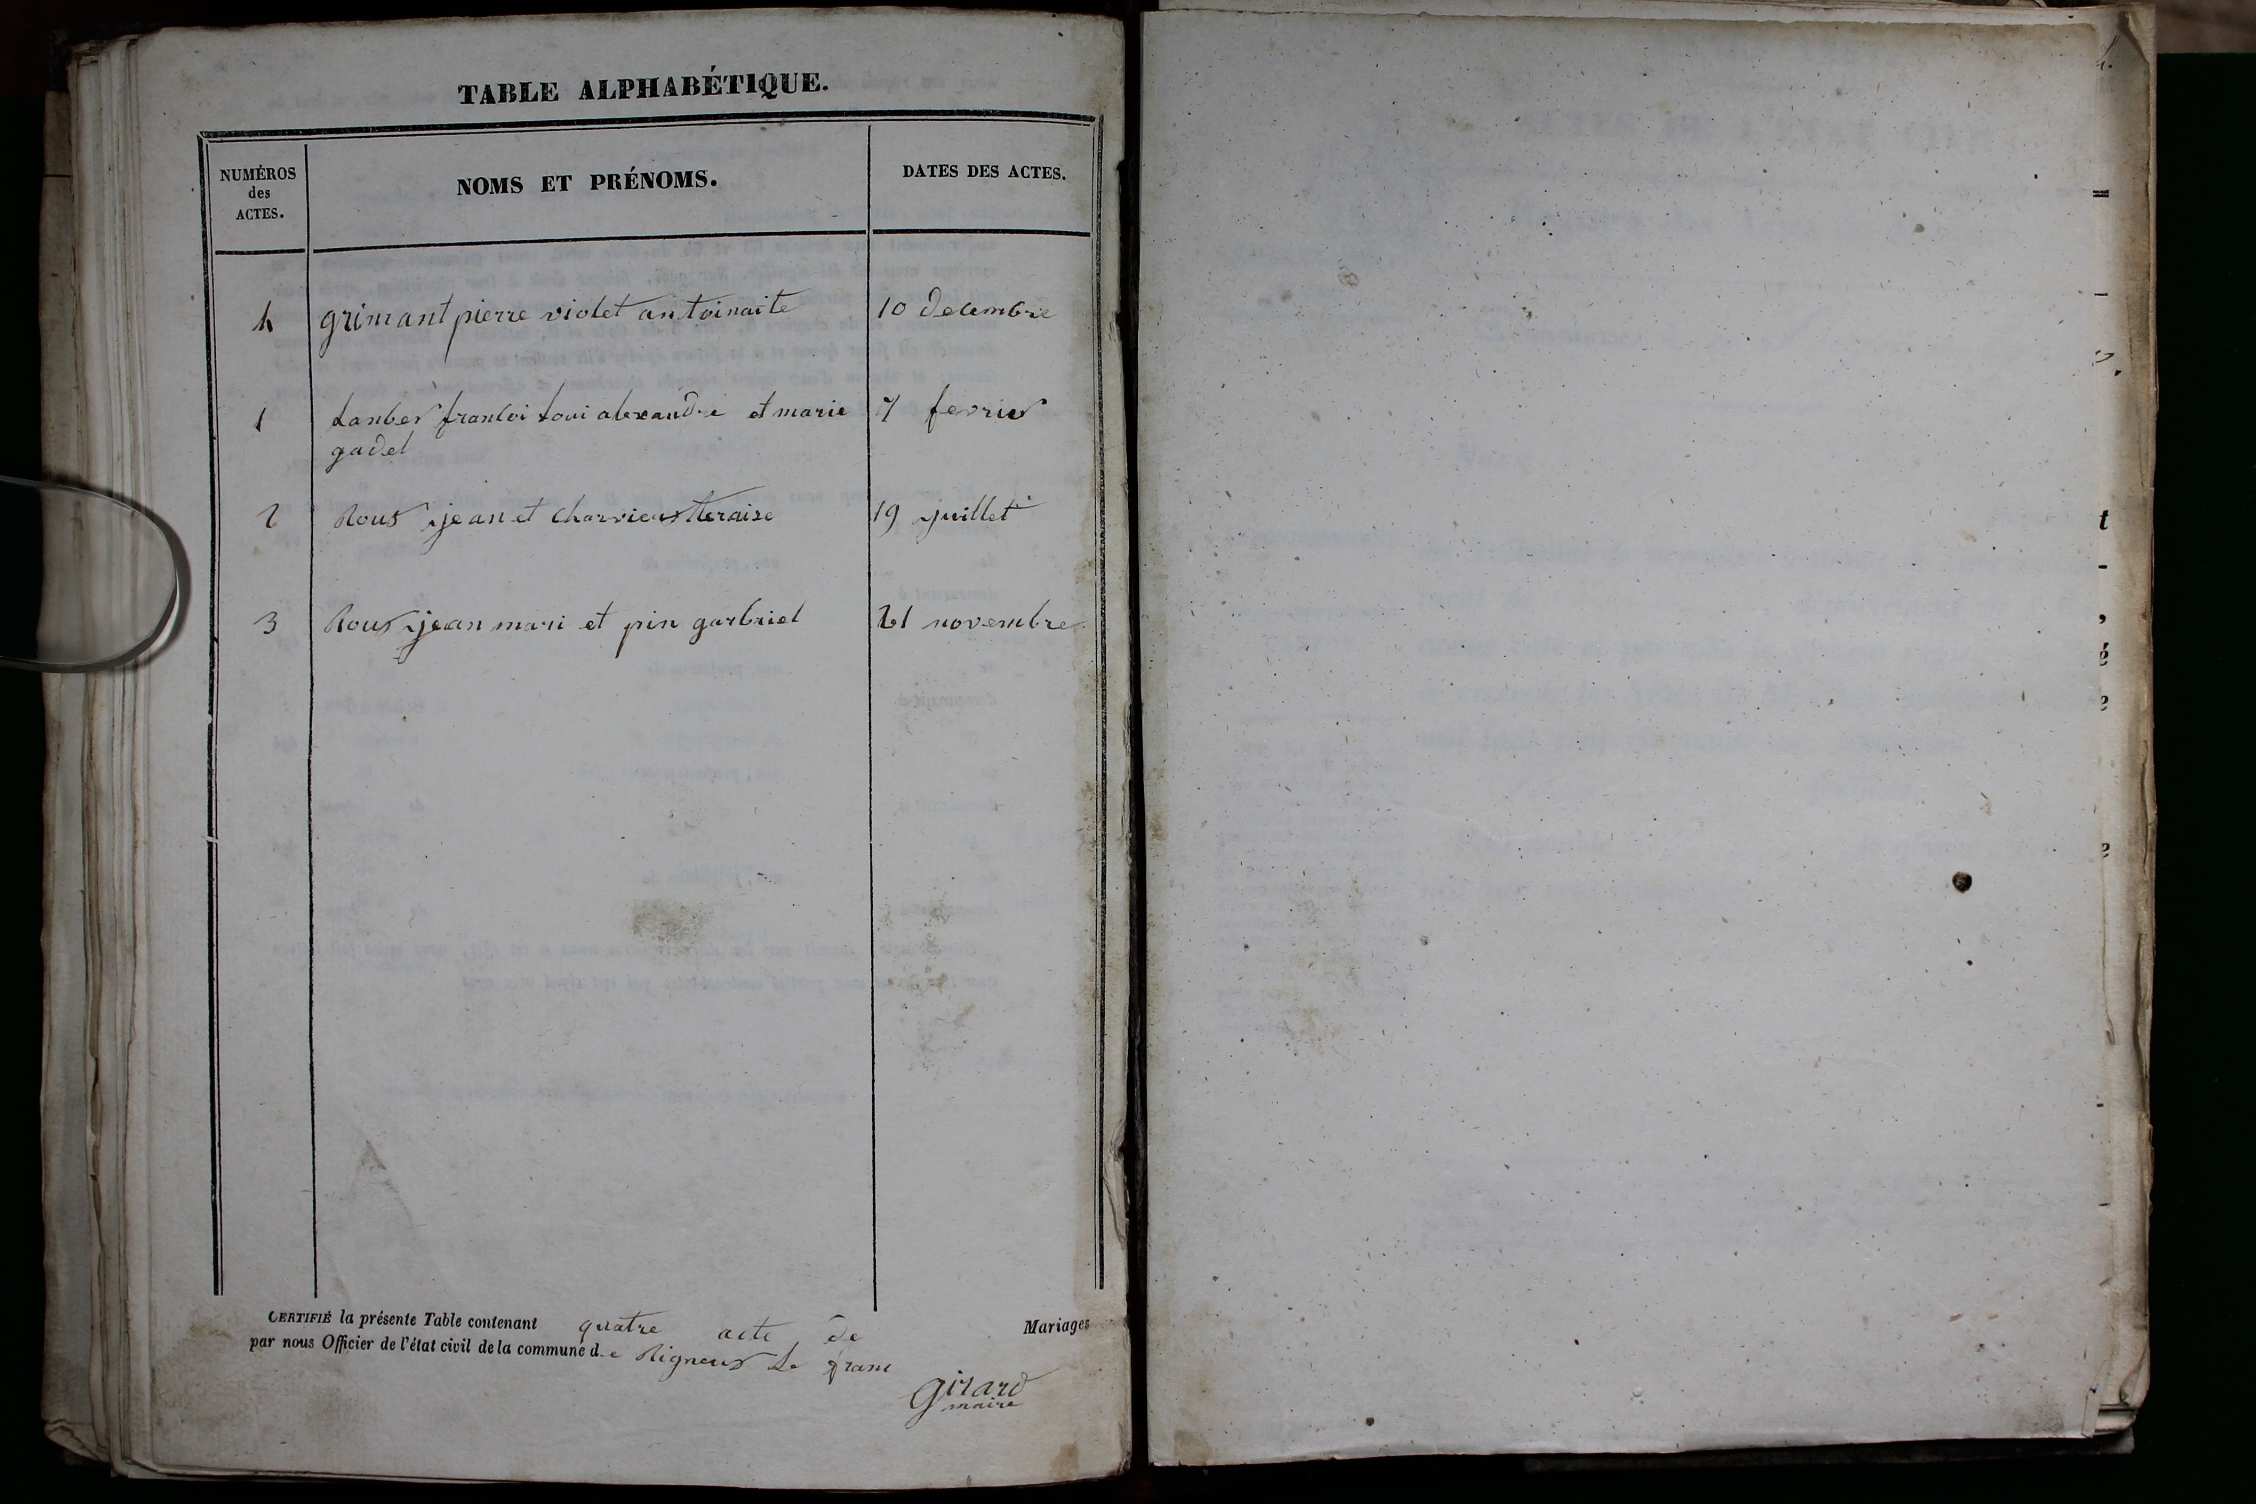 TABLE ALPHABÉTIQUE.
NUMÉROS
des
ACTES.
NOMS ET PRÉNOMS.
DATES DES ACTES.
4 grimant pierre violet antoinaite 10 decembre
1 Lanber franloi Loui alexandre et marie 7 fevrier
gadel
2 Rous jean et charvieux teraise 19 juillet
3 Rous jean mari et pin garbriel 21 novembre
CERTIFIÉ la présente Table contenant quatre acte de Mariages
par nous Officier de l'état civil de la commune de Rigneux Le franc
girard
maire